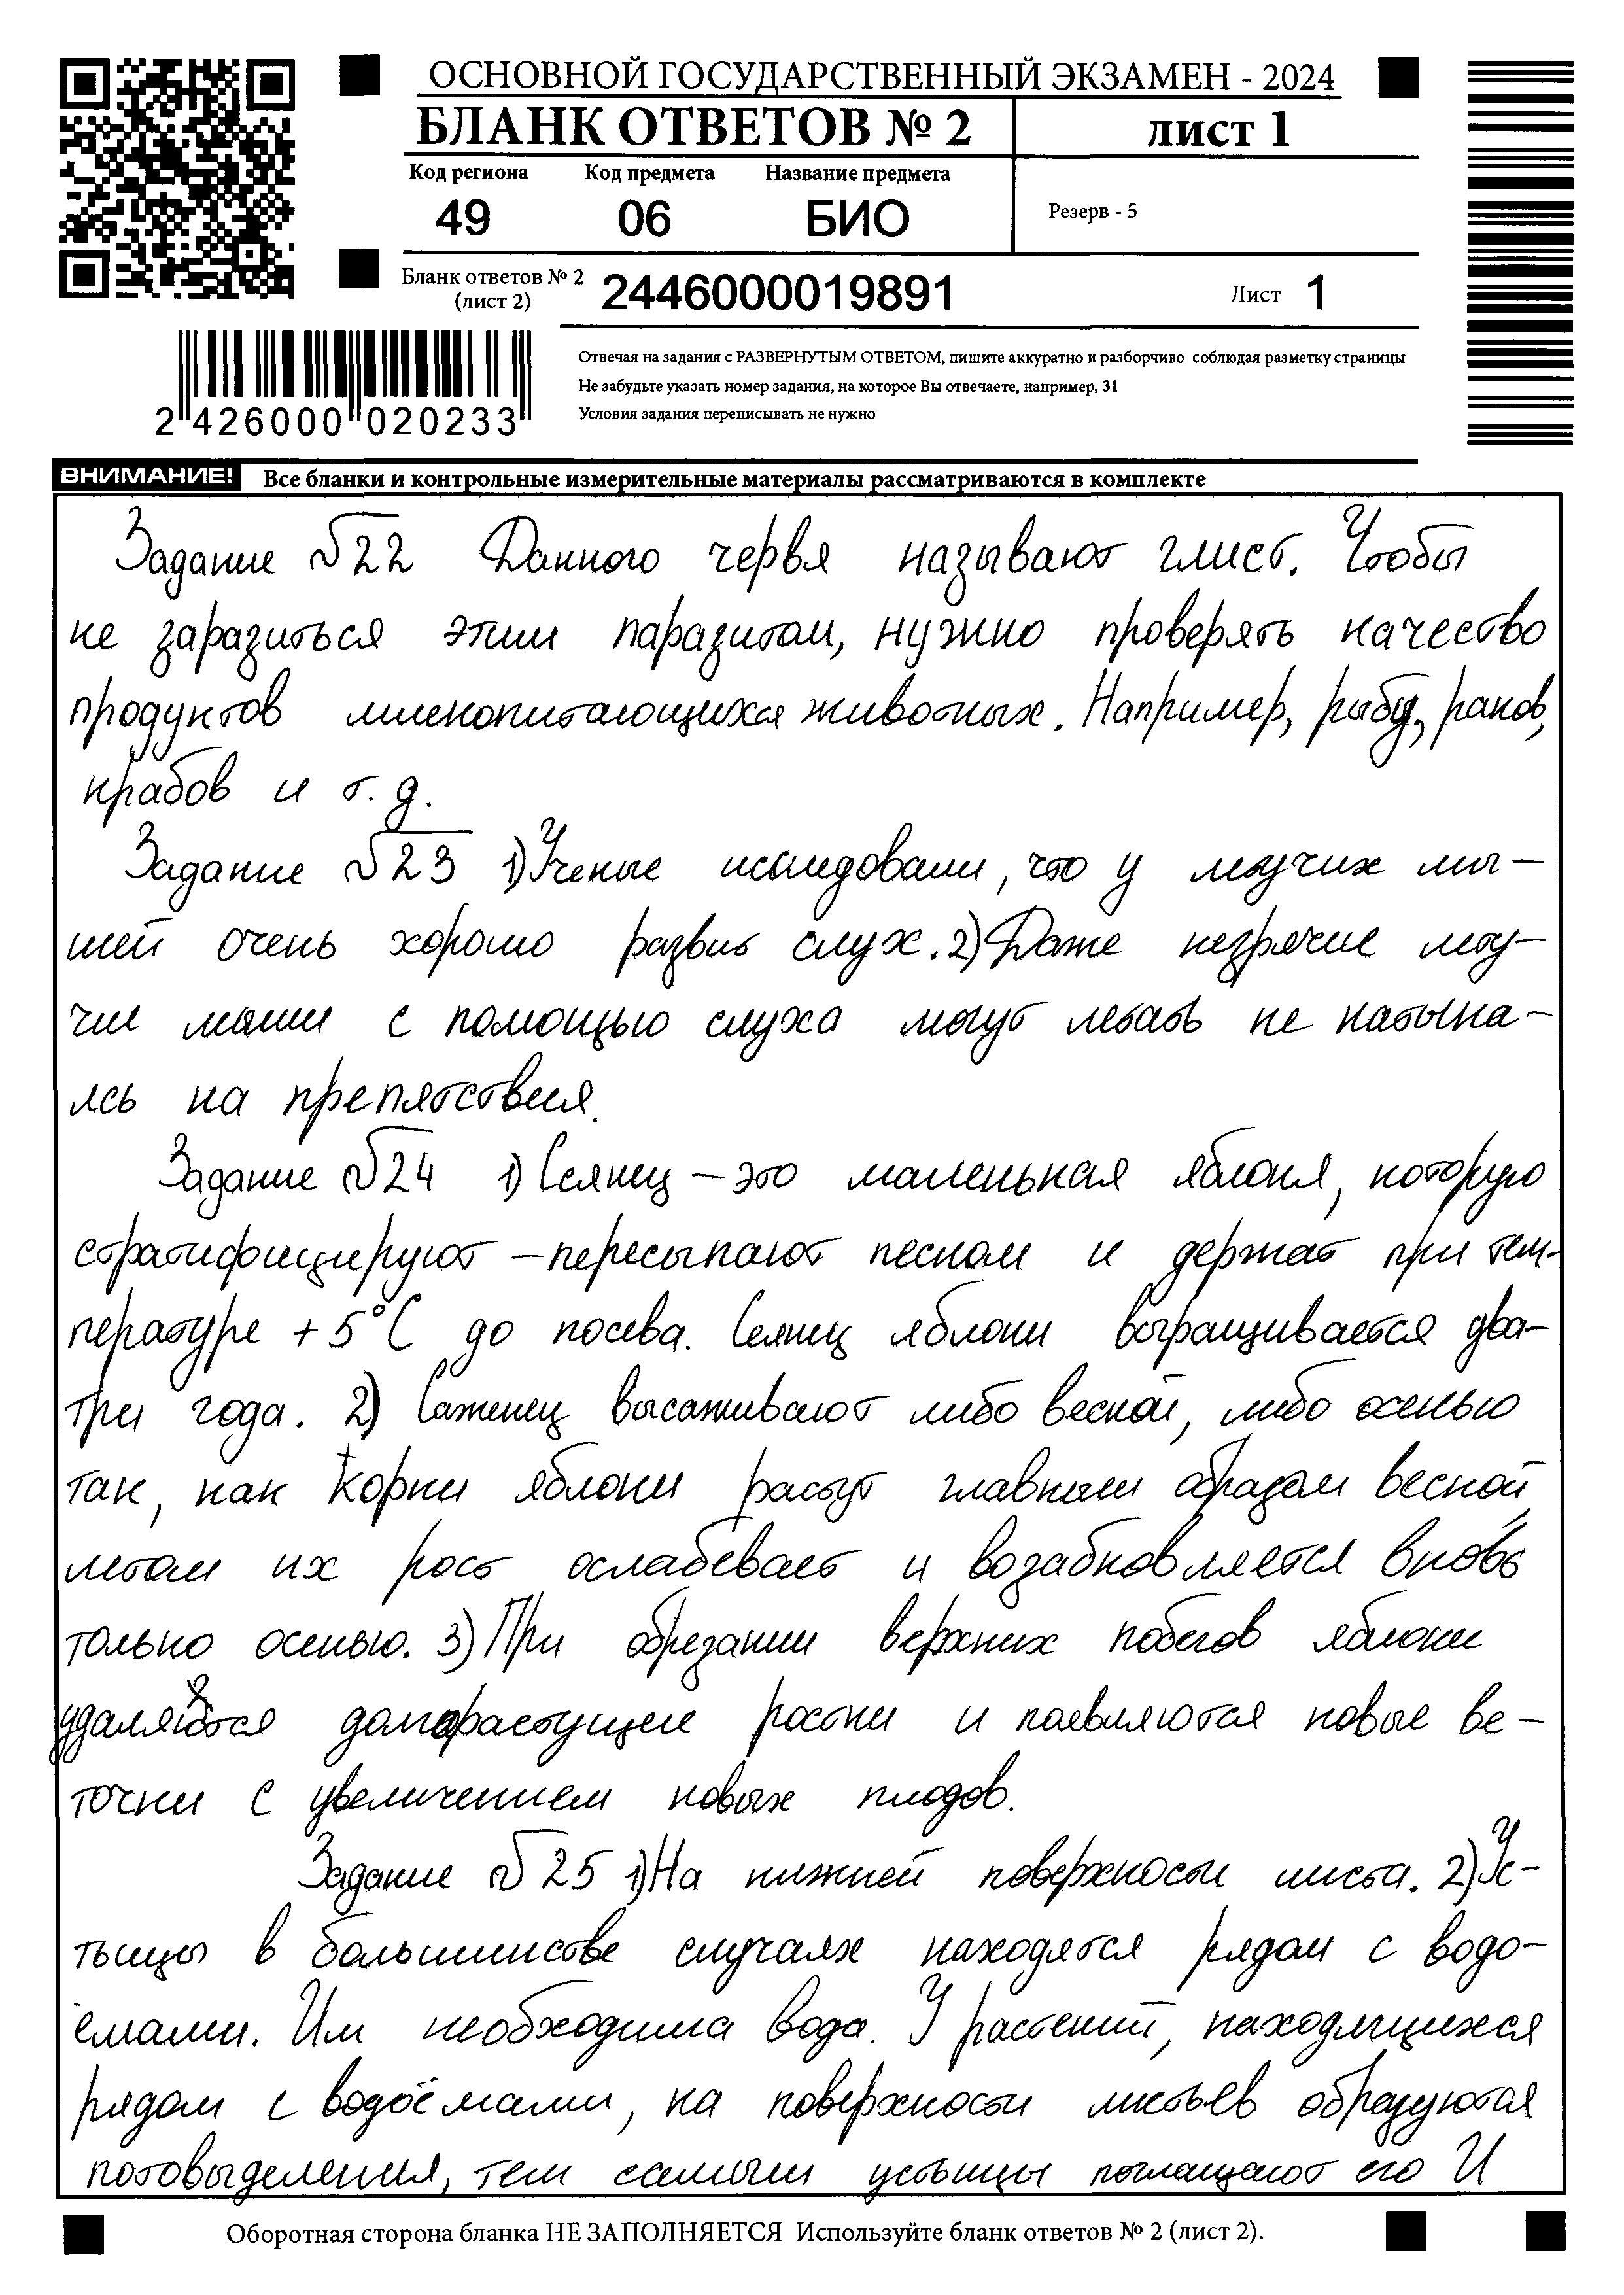 ОСНОВНОЙ ГОСУДАРСТВЕННЫЙ ЭКЗАМЕН - 2024
БЛАНК ОТВЕТОВ № 2
лист 1
Код региона Код предмета Название предмета
49 06 БИО
Резерв - 5
Бланк ответов № 2 (лист 2) 2446000019891
Лист 1
2 426000 020233
Отвечая на задания с РАЗВЕРНУТЫМ ОТВЕТОМ, пишите аккуратно и разборчиво соблюдая разметку страницы
Не забудьте указать номер задания, на которое Вы отвечаете, например, 31
Условия задания переписывать не нужно
ВНИМАНИЕ! Все бланки и контрольные измерительные материалы рассматриваются в комплекте
Задание №22 Данного червя называют глист. Чтобы
не заразиться этим паразитом, нужно проверять качество
продуктов млекопитающихся животных. Например, рыбу, раков,
крабов и т. д.
Задание №23 1) Ученые исследовали, что у летучих мы-
шей очень хорошо развит слух. 2) Даже незрячие лету-
чие мыши с помощью слуха могут летать не натыка-
ясь на препятствия.
Задание №24 1) Сеянец – это маленькая яблоня, которую
стратифицируют – пересыпают песком и держат при тем-
пературе +5°С до посева. Сеянец яблони выращивается два-
три года. 2) Саженец высаживают либо весной, либо осенью
так, как корни яблони растут главным образом весной,
летом их рост ослабевает и возабновляется вновь
только осенью. 3) При обрезании верхних побегов яблони
удаляются долгорастущие ростки и появляются новые ве-
точки с увеличением новых плодов.
Задание №25 1) На нижней поверхности листа. 2) Ус-
тьицы в большинстве случаях находятся рядом с водо-
ёмами. Им необходима вода. У растений, находящихся
рядом с водоёмами, на поверхности листьев образуются
потовыделения, тем самым устьицы поглащают его И
Оборотная сторона бланка НЕ ЗАПОЛНЯЕТСЯ Используйте бланк ответов № 2 (лист 2).